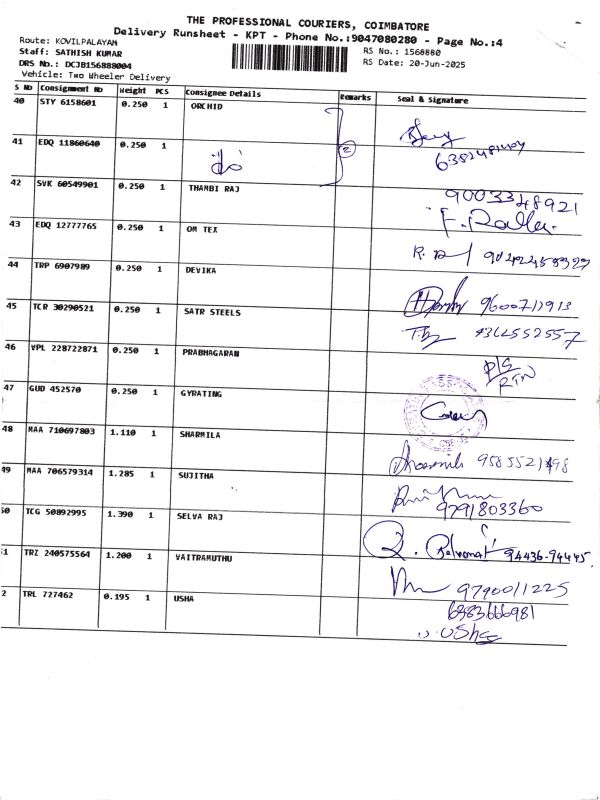 THE PROFESSIONAL COURIERS, COIMBATORE
Delivery Runsheet - KPT - Phone No.:9047080280 - Page No.:4
Route: KOVILPALAYAM
RS No.: 1568880
Staff: SATHISH KUMAR
RS Date: 20-Jun-2025
DRS No.: DCJB156888004
Vehicle: Two Wheeler Delivery
S No Consignment No Weight PCS Consignee Details Remarks Seal & Signature
40 STY 6158601 0.250 1 ORCHID
41 EDQ 11860640 0.250 1 2
42 SVK 60549901 0.250 1 THAMBI RAJ 9003348921
43 EDQ 12777765 0.250 1 OM TEX
44 TRP 6907989 0.250 1 DEVIKA
45 TCR 30290521 0.250 1 SATR STEELS
46 VPL 228722871 0.250 1 PRABHAGARAN
RTN
47 GUD 452570 0.250 1 GYRATING
48 MAA 710697803 1.110 1 SHARMILA
49 MAA 706579314 1.285 1 SUJITHA
9791803360
50 TCG 50892995 1.390 1 SELVA RAJ
94436-94445
51 TRZ 240575564 1.200 1 VAITRAMUTHU
9790011225
2 TRL 727462 0.195 1 USHA
6383666981
Usha